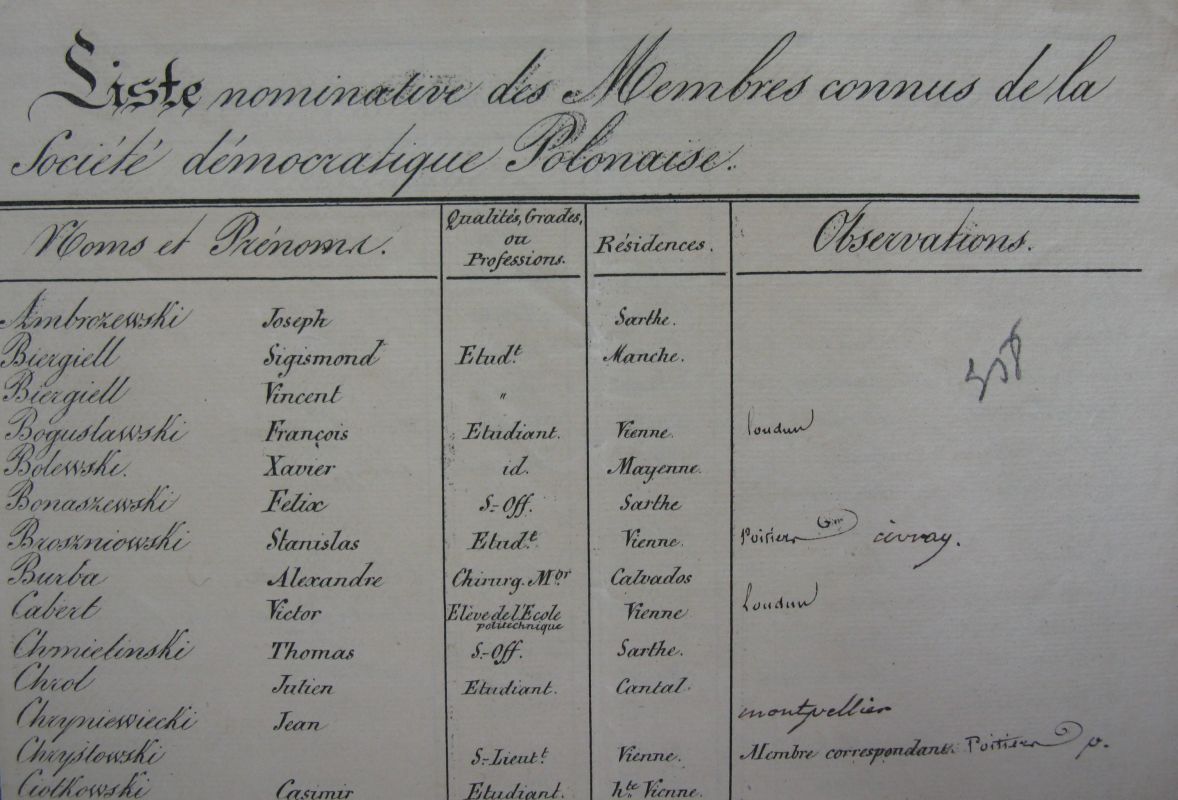 Liste nominative des Membres connus de la
Société démocratique Polonaise.
Noms et Prénoms. Qualités, Grades, ou Professions. Résidences. Observations.
Ambrozewski Joseph Sarthe.
Biergiell Sigismond Etud.t Manche.
Biergiell Vincent "
Boguslawski François Etudiant. Vienne. loudun
Bolewski. Xavier id. Mayenne.
Bonaszewski Felix S.-Off. Sarthe
Broszniowski Stanislas Etud.t Vienne. Poitiers civray.
Burba Alexandre Chirurg. M.or Calvados
Cabert Victor Elève de l'Ecole politechnique Vienne loudun
Chmielinski Thomas S.-Off. Sarthe.
Chrol Julien Etudiant. Cantal.
Chryniewiecki Jean montpellier
Chrystowski S.-Lieut.t Vienne. Membre correspondant. Poitiers p.
Ciotkowski Casimir Etudiant. h.te Vienne.